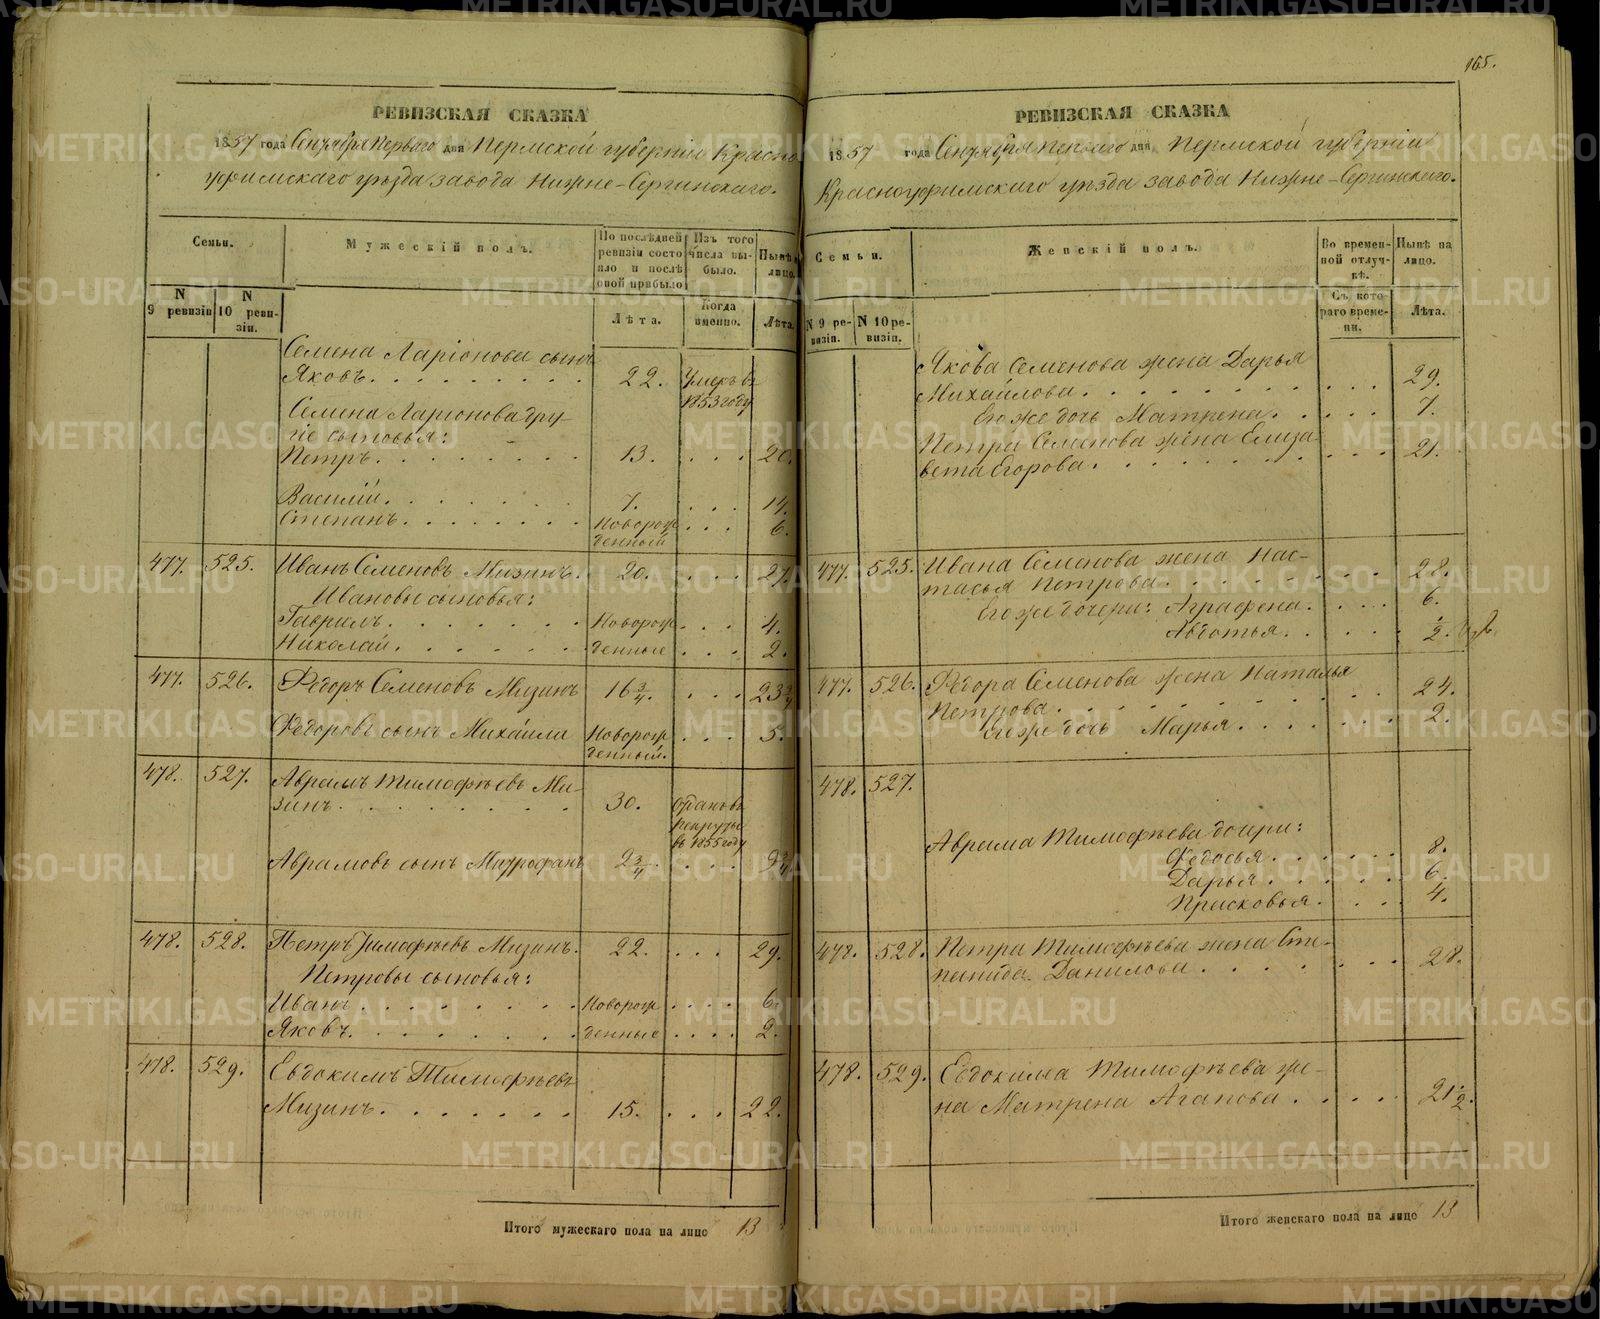 165.
РЕВИЗСКАЯ СКАЗКА
1857 года Сентября Перваго дня Пермской губерніи Красно
уфимскаго уѣзда завода Нижне-Сергинскаго.
Семьи.
Мужескій полъ.
По послѣдней ревизіи состояло и послѣ оной прибыло
Изъ того числа выбыло.
Нынѣ на лицо.
N 9 ревизіи
N 10 ревизіи.
Лѣта.
Когда именно.
Лѣта.
Семена Ларіонова сынъ
Яковъ. 22. Умеръ въ 1853 году
Семена Ларіонова дру-
гіе сыновья:
Петръ. 13. 20.
Василій. 7. 14.
Степанъ. Новорожденный 6.
477. 525. Иванъ Семеновъ Мизинъ. 20. 27.
Ивановы сыновья:
Гаврилъ. Новорож- 4.
Николай. денные 2.
477. 526. Ѳедоръ Семеновъ Мизинъ 16 3/4. 23 3/4
Ѳедоровъ сынъ Михайла Новорожденный. 5.
478. 527. Аврамъ Тимофѣевъ Ми-
зинъ. 30. Отданъ въ рекруты въ 1855 году
Аврамовъ сынъ Митрофанъ 2 3/4 9 3/4
478. 528. Петръ Тимофѣевъ Мизинъ. 22. 29.
Петровы сыновья:
Иванъ Новорож- 6.
Яковъ. денные 2.
478. 529. Евдокимъ Тимофѣевъ
Мизинъ. 15. 22.
Итого мужескаго пола на лицо 13
РЕВИЗСКАЯ СКАЗКА
1857 года Сентября Перваго дня Пермской губерніи
Красноуфимскаго уѣзда завода Нижне-Сергинскаго.
Семьи.
Женскій полъ.
Во временной отлучкѣ.
Нынѣ на лицо.
N 9 ревизіи.
N 10 ревизіи.
Съ котораго времени.
Лѣта.
Якова Семенова жена Дарья
Михайлова. 29.
Его же дочь Матрена. 7.
Петра Семенова жена Елиза-
вета Егорова. 21.
477. 525. Ивана Семенова жена Нас-
тасья Петрова. 28.
Его же дочери: Аграфена. 6.
Авдотья. 1/2.
477. 526. Ѳедора Семенова жена Наталья
Петрова. 24.
Его же дочь Марья. 2.
478. 527.
Аврама Тимофѣева дочери:
Ѳедосья. 8.
Дарья. 6.
Прасковья. 4.
478. 528. Петра Тимофѣева жена Сте-
панида Данилова. 28.
478. 529. Евдокима Тимофѣева же-
на Матрена Агапова. 21 1/2.
Итого женскаго пола на лицо 13
METRIKI.GASO-URAL.RU